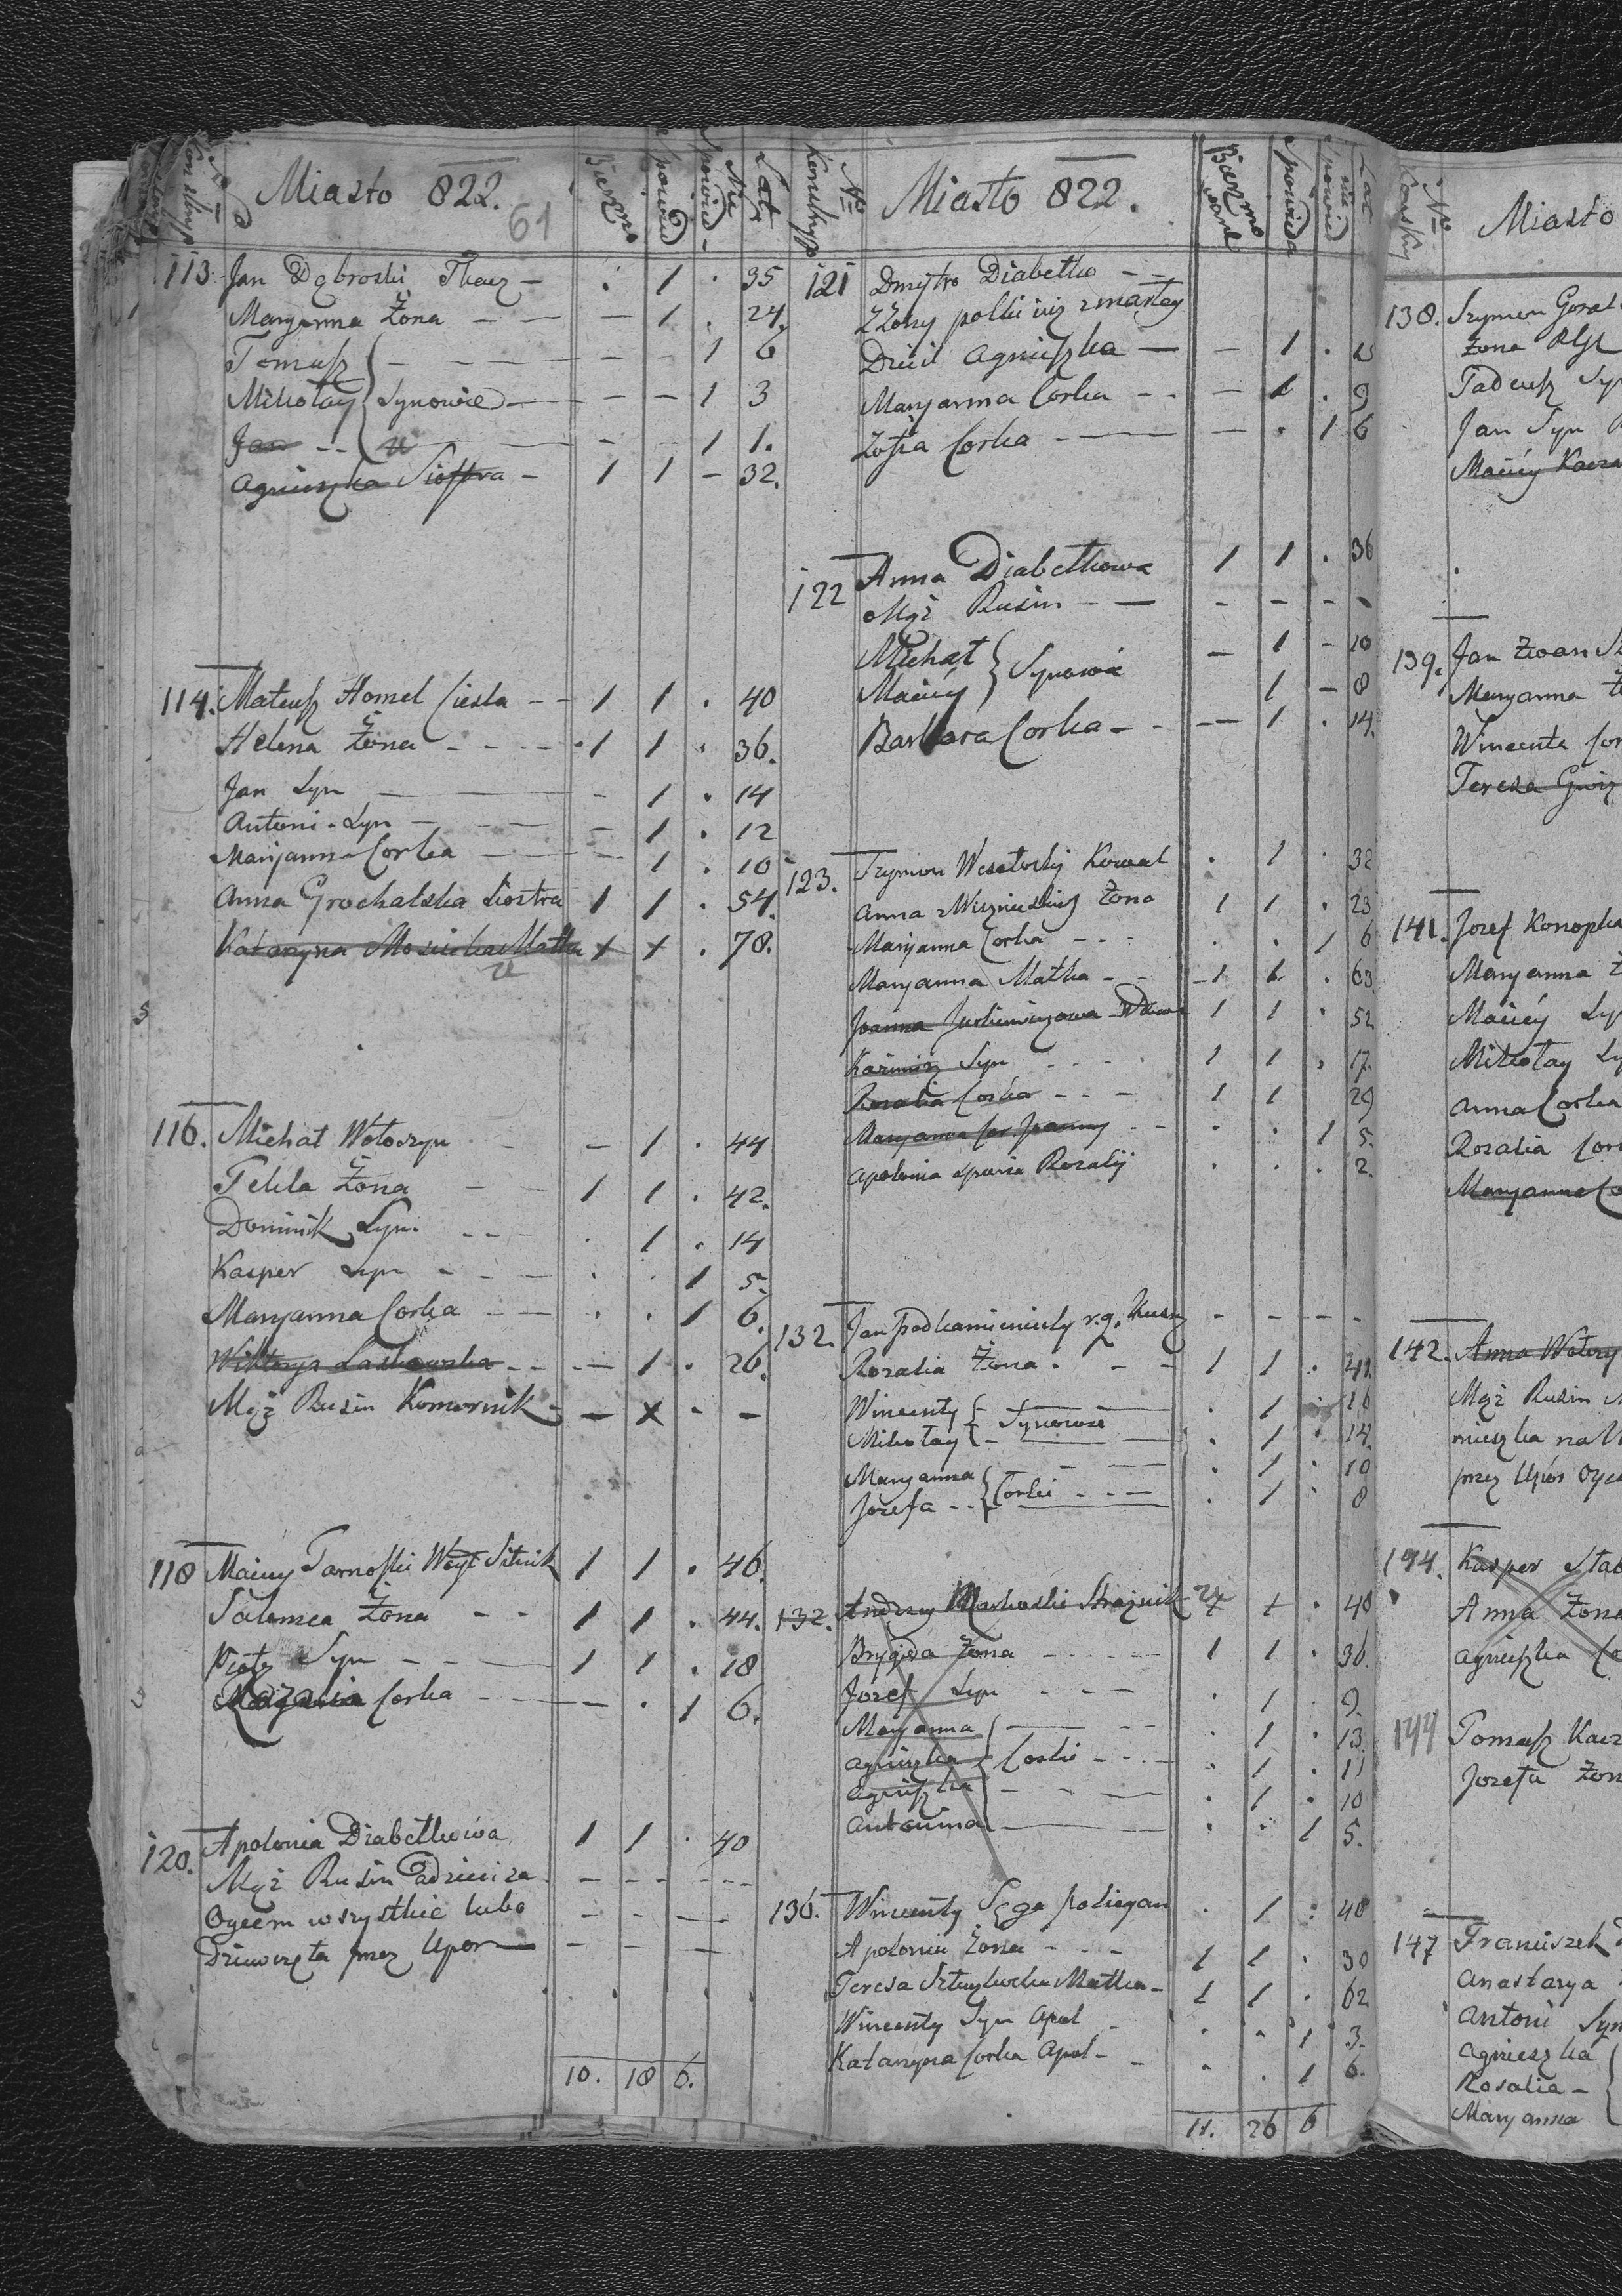 Miasto 822.
61
Bierzmo
Spowied
Nie Spowied
Lat
113. Jan Dąbroski Tkacz - . 1 . 35
Maryanna Żona - - - 1 . 24.
Tomasz - - - - 1 6
Mikołay Synowie - - - 1 3
Jan - - - - 1 1.
Agnieszka Siostra - 1 1 - 32.
114. Mateusz Homel Ciesla - - 1 1 . 40
Helena Żona - - - - 1 1 . 36.
Jan Syn - - 1 . 14
Antoni - Syn - - 1 . 12
Maryanna Corka - - 1 . 10
Anna Grochalska Siostra 1 1 . 54.
Kataryna Mosicka Matka x x . 70.
116. Michał Wołoszyn - - 1 . 44
Tekla Żona - - 1 1 . 42.
Dominik Syn - - - . 1 . 14
Kasper Syn - - - . . 1 5.
Maryanna Corka - - . . 1 6.
Wiktorya Laskowska - - - 1 . 26.
Mąż Rusin Komornik - - x - -
118 Maciey Tarnoski Sitnik 1 1 . 46.
Salomea Żona - - 1 1 . 44.
Piotr Syn - - - 1 1 . 18
Rozalia Corka - - - . 1 6.
120. Apolonia Diabełkowa 1 1 . 40
Mąż Rusin
Oycem wszystkie lubo - - -
Dziewczęta przez Upor - - -
10. 18 6.
No Konskryp
Miasto 822.
Bierzmowani
Spowied
nie spowied
Lat
121 Dmytro Diabełko - -
z Żony zmarłey
Agnieszka - - 1 .
Maryanna Corka - - - 1 . 9
Zofia Corka - - - . 1 6
122 Anna Diabełkowa 1 1 . 36
Mąż Rusin - - - - - -
Michał Synowie - 1 - 10
Maciey 1 - 8
Barbara Corka - - - 1 . 14.
123. Szymon Wesełoskij Kowal . 1 . 32
Anna Żona 1 1 . 23
Maryanna Corka - - - . . 1 6
Maryanna Matka - - 1 1 . 63
Joanna Wdowa 1 1 . 52
Kazimirz Syn - - - 1 1 . 17.
Rozalia Corka - - - 1 1 29
Maryanna Cor Joanny - - . . 1 5.
Apolonia spuria Rozalij . . . 2.
132. Jan Podkamieniecky r.g. Kusn - - - -
Rozalia Żona . - - 1 1 . 41.
Wincenty Synowie . 1 . 16
Mikołay . 1 . 14.
Maryanna Corki . 1 . 10
Jozefa - - . 1 . 8
132. Andrzey Markoski Strażnik x + . 40
Brygida Żona - - - 1 1 . 36.
Jozef Syn - - - . 1 . 9.
Maryanna . 1 . 13
Agnieszka Corki - - - . 1 . 11
Agnieszka . 1 . 10
Antonina . . 1 5.
136. Wincenty Sęga . 1 : 40
Apolonia Żona - - - 1 1 . 30
Teresa Matka - 1 1 . 62
Wincenty Syn Apol - . . 1 3.
Kataryna Corka Apol - - . . 1 6.
11. 26 6
No Konskry
Miasto
138. Szymon Goral
Żona
Tadeusz Sy
Jan Syn
Maciey
139. Jan
Maryanna
Wincenta Cor
Teresa
141. Jozef Konopka
Maryanna
Maciey Sy
Mikołay Sy
Anna Corka
Rozalia Cor
Maryanna Co
142. Anna
Mąż Rusin
mieszka na
przez Upor Oyc
144. Kasper
Anna Żona
Agnieszka Co
144 Tomasz Kacz
Jozefa Żon
147 Franciszek
Anastazya
Antoni Syn
Agnieszka
Rosalia -
Maryanna